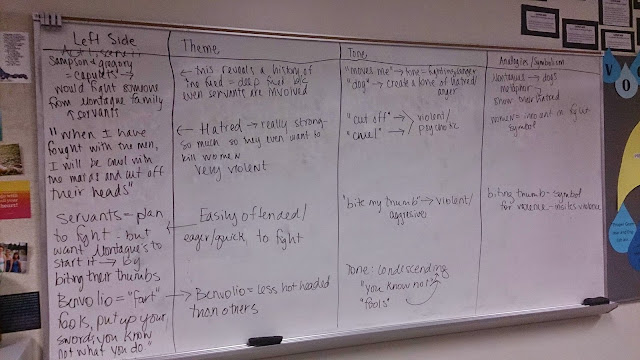 Left Side
Act 1, scene 1
Sampson & Gregory
= capulets →
would fight someone
from Montague family
↳ servants
"When I have
fought with the men,
I will be cruel with
the maids and cut off
their heads"
servants = plan
to fight - but
want Montague's to
start it → by
biting their thumbs
Benvolio = "Part"
fools, put up your
swords, you know
not what you do."
Theme
← this reveals a history of
the feud = deep feud b/c
even servants are involved
← Hatred → really strong -
so much so they even want to
kill women
very violent
Easily offended/
eager/quick to fight
→ Benvolio = less hot headed
than others
Tone
"moves me" → tone = fighting/anger
"dog" → create a tone of hatred/
anger
"cut off" → violent/
"cruel" → psychotic
"bite my thumb" → violent/
aggressive
Tone: condescending
"you know not"
"fools"
Analogies/Symbolism
Montagues → dogs
metaphor
show their hatred
women = innocent in fight
symbol
biting thumb - symbol
for violence - insites violence
V
O